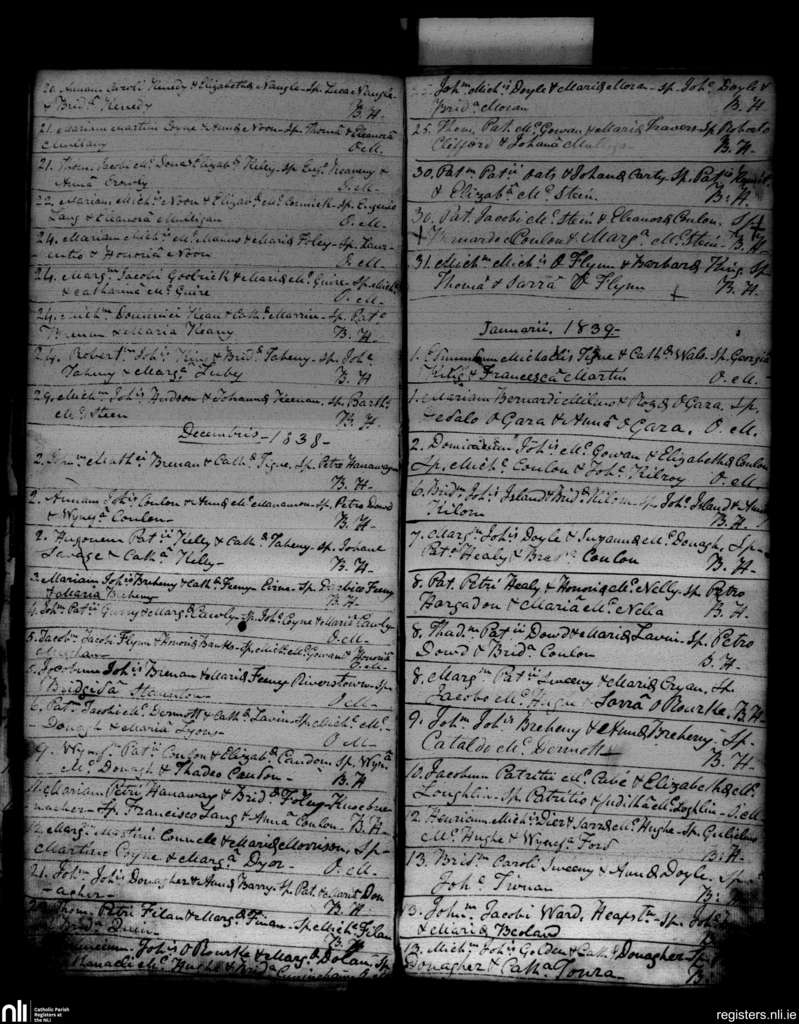 20. Annam Caroli Kenedy & Elizabethæ Nangle - Sp. Luca Nangle
& Brid.a Kenedy B. H.
21. Mariam Martini Coyne & Annæ Noon - Sp. Thomâ & Eleanorâ
O. M.
21. Thom. Jacobi Mc. & Elizab. Kelly - Sp. Eug.o Keaveny &
Anna O. M.
22. Mariam Mich.is Noon & Elizab. McCormick - Sp. Eugenio
Lang & Eleanora Mulligan O. M.
24. Mariam Mich.is McManus & Mariæ Foley - Sp.
& Honoria Noon O. M.
24. Marg.m Jacobi Goodrick & Mariæ Mc Guire - Sp. Mich.e
& Catharina Mc Guire O. M.
24. Mich.m Dominici Kean & Cath. Marrin - Sp. Pat.o
Brenan & Maria Keany B. H.
24. Robert.m Joh.is King & Brid. Taheny - Sp. Joh.e
Taheny & Marg.a Luby B. H.
29. Mich.m Joh.is Hudson & Johannæ Keenan. Sp. Barth.o
Mc. Steen B. H.
Decembris - 1838 -
2. Mathei Brenan & Cath. Tigue, Sp. Petro Hanawayn
B. H.
2. Annam Joh.is Conlon & Annæ McManamon - Sp. Petro Dowd
& Wynef.a Conlon - B. H.
2. Hugonem Pat.ii Kelly & Cath. Taheny - Sp. Johane
Savage & Cath.a Kelly - B. H.
3. Mariam Joh.is Breheny & Cath. Feeny - Sp. Feeny
& Maria Breheny B. H.
4. Joh.m Pat.ii & Marg. Cawly - Sp. Joh.e Coyne & Maria Cawly
O. M.
5. Jacob.m Jacobi Flynn & Honoriæ Banks - Sp. Mich.e McGowan & Honoriâ
O. M.
5. Jacobum Joh.is Brenan & Mariæ Feeny Riverstown - Sp.
Bridgida O. M.
6. Pat.m Jacobi Mc. Dermott & Cath. Lavin - Sp. Mich.e Mc.
Donagh & Maria Lyons O. M.
9. Wynef.m Pat.ii Conlon & Elizab. Sp. Wyn.a
Mc. Donagh & Thadeo Conlon - B. H
11. Mariam Petri Hanaway & Brid. Foley
- Sp. Francisco Lang & Anna Conlon - B. H.
12. Marg. Martini Connell & Mariæ Morrison, Sp.
Martino Coyne & Marg.a Dyer - O. M.
21. Joh.m Joh.is Donagher & Annæ Barry - Sp. Pat. & Maria Don
agher - B. H.
Thom. Petri Filan & Marg. Finan - Sp. Mich.e Filan
& Brid.a B. H
Joh.is O Rourke & Marg. Dolan - Sp.
Mc. Hugh & Brid.a Cuningham B. H.
Joh.m Mich.is Doyle & Mariæ Moran - Sp. Joh.e Doyle &
Brid.a Moran B. H.
25. Thom. Pat. Mc. Gowan & Mariæ Travers - Sp. Roberto
Clifford & Johanâ B. H.
30. Pat.m Pat.ii Oats & Johanæ Carty - Sp. Pat.o
& Elizab.a Mc. Stein. B. H.
30. Pat. Jacobi Mc. Stein & Eleanoræ Conlon. Sp.
Bernardo Conlon & Marg.a Mc. Stein - B. H
31. Mich.m Mich.is O Flynn & Barbaræ King. Sp
Thomâ & Sarrâ O Flynn B. H.
Januarii, 1839 -
1. Edmundum Michaelis Tigue & Cath. Wals. Sp. Georgio
& Francescâ Martin O. M.
1. Mariam Bernardi Milmo & Rozæ O Gara, Sp.
O Gara & Annâ O Gara. O. M.
2. Dominicum Joh.is Mc. Gowan & Elizabethæ Conlon
Sp. Mich.e Conlon & Joh.e Kilroy O. M.
6. Brid.m Joh.is Island & Brid. Kilorn - Sp. Joh.e Island & Anna
Kilorn B. H.
7. Marg.m Joh.is Doyle & Suzannæ Mc. Donagh, Sp.
Pat.o Healy & Conlon B. H.
8. Pat. Petri Healy & Honoriæ Mc. Nelly - Sp. Petro
Hargadon & Maria Mc. Nella B. H.
8. Thad.m Pat.ii Dowd & Mariæ Lavin - Sp. Petro
Dowd & Brid.a Conlon B. H.
8. Marg.m Pat.ii Sweeny & Mariæ Cryan. Sp.
Jacobo Mc. Hugh & Sarrâ O Rourke, B. H.
9. Joh.m Joh.is Breheny & Annæ Breheny - Sp.
Cataldo Mc. Dermott - B. H.
10. Jacobum Patritii Mc. Cabe & Elizabethæ Mc.
Loughlin - Sp. Patritio & Judithâ Mc. Loghlin - O. M.
12. Henricum Mich.is Dier & Sarræ Mc. Hughe - Sp. Gulielmo
Mc. Hughe & Wynef.a Ford B. H.
13. Brid.m Caroli Sweeny & Annæ Doyle. Sp.
Joh.e B. H.
13. Joh.m Jacobi Ward, - Sp. Joh.e
& Mariâ Beoland B.
13. Mich.m Joh.is Golden & Cath. Donagher - Sp.
Donagher & Cath.a Toura - B.
nli Catholic Parish
Registers at
the NLI
registers.nli.ie